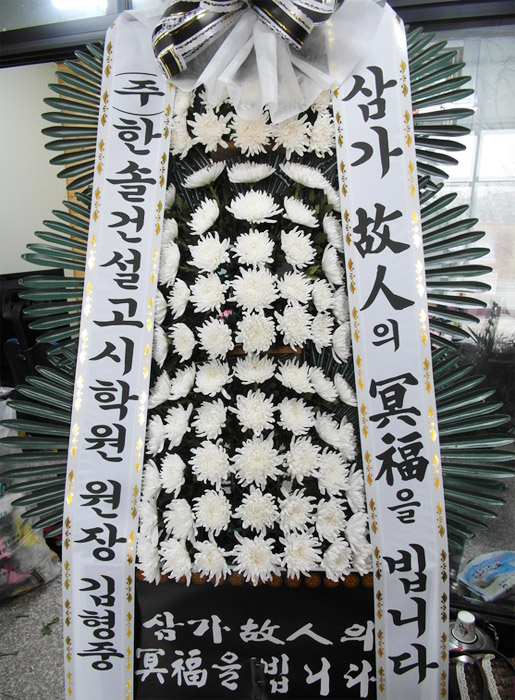 (주)한솔건설고시학원 원장 김형중
삼가 故人의 冥福을 빕니다
삼가 故人의
冥福을 빕니다